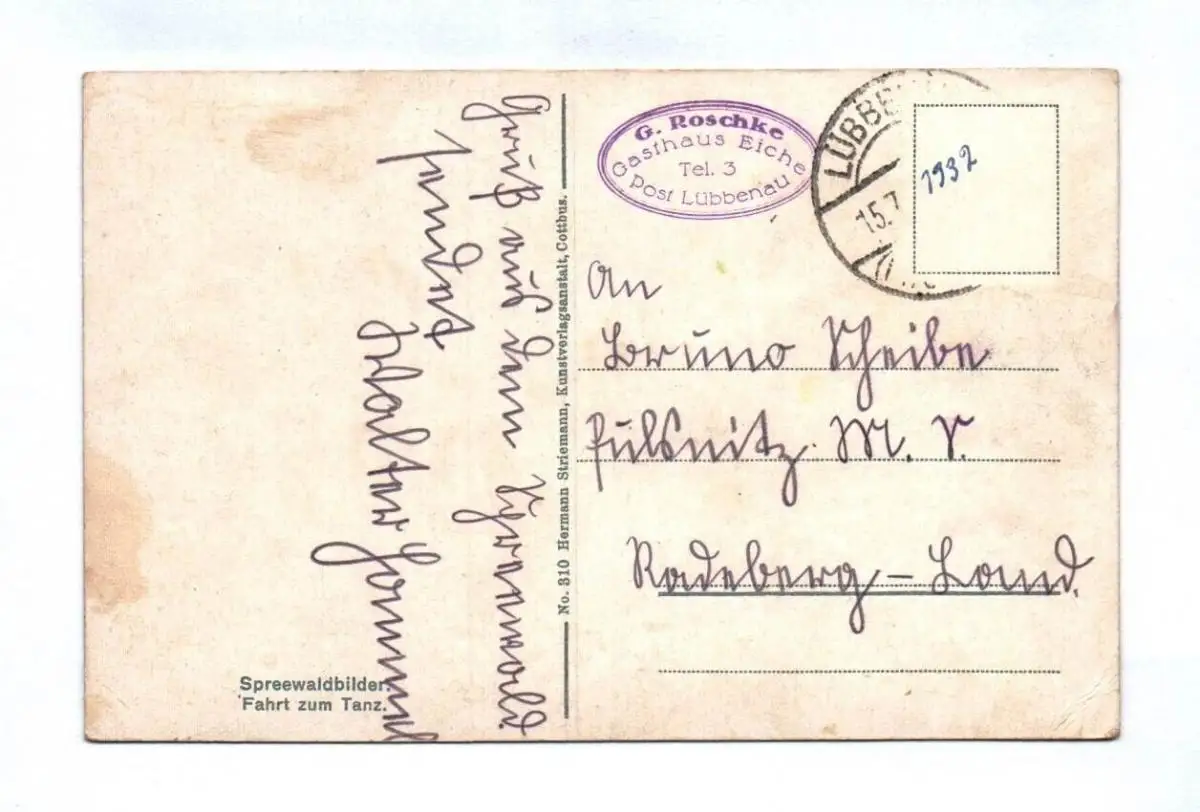 Gruß aus dem Spreewald
sendet
G. Roschke
Gasthaus Eiche
Tel. 3
Post Lübbenau
LÜBBE
15.7
1932
An
Bruno Scheibe
Pulsnitz M. S.
Radeberg – Land.
No. 310 Hermann Striemann, Kunstverlagsanstalt, Cottbus.
Spreewaldbilder.
Fahrt zum Tanz.